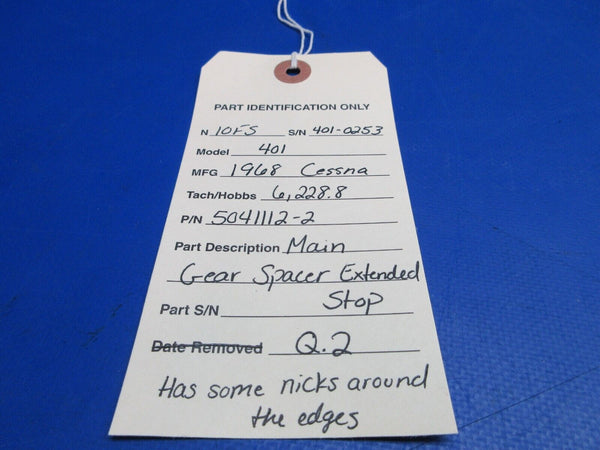 PART IDENTIFICATION ONLY
N 10FS S/N 401-0253
Model 401
MFG 1968 Cessna
Tach/Hobbs 6,228.8
P/N 5041112-2
Part Description Main
Gear Spacer Extended
Stop
Part S/N
Date Removed Q.2
Has some nicks around
the edges